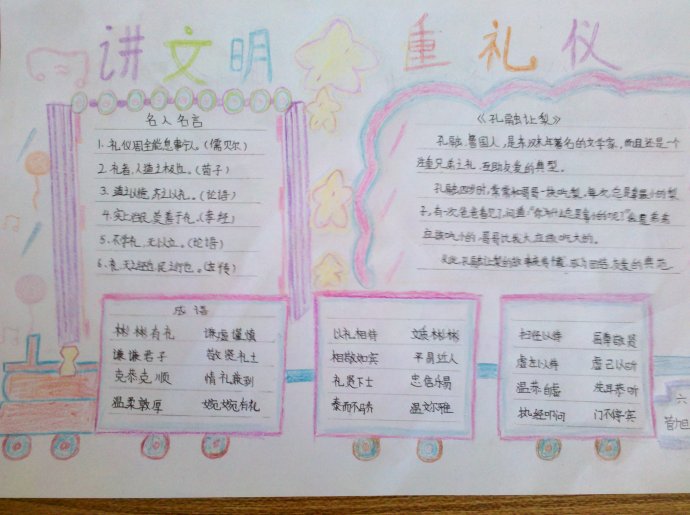 讲文明 重礼仪
名人名言
1、礼仪周全能息事宁人。(儒贝尔)
2、礼者，人道之极也。(荀子)
3、道之以德，齐之以礼。(论语)
4、安上治民，莫善于礼。(孝经)
5、不学礼，无以立。(论语)
6、礼，天之经也，民之行也。(左传)
《孔融让梨》
孔融，鲁国人，是东汉末年著名的文学家，而且还是一个
注重兄弟之礼、互助友爱的典型。
孔融四岁时，常常和哥哥一块吃梨，每次，总是拿最小的梨
子，有一次，爸爸看见了，问道:“你为什么总是拿小的呢？”
应该吃小的，哥哥比我大应该吃大的。
成为团结友爱的典范。
成语
彬彬有礼 谦虚谨慎
谦谦君子 敬贤礼士
克恭克顺 情礼兼到
温柔敦厚 婉婉有礼
以礼相待 文质彬彬
相敬如宾 平易近人
礼贤下士 忠信乐易
泰而不骄 温文尔雅
扫径以待 屈尊敬贤
虚左以待 虚己以听
温恭自虚 洗耳恭听
执经叩问 门不停宾
六